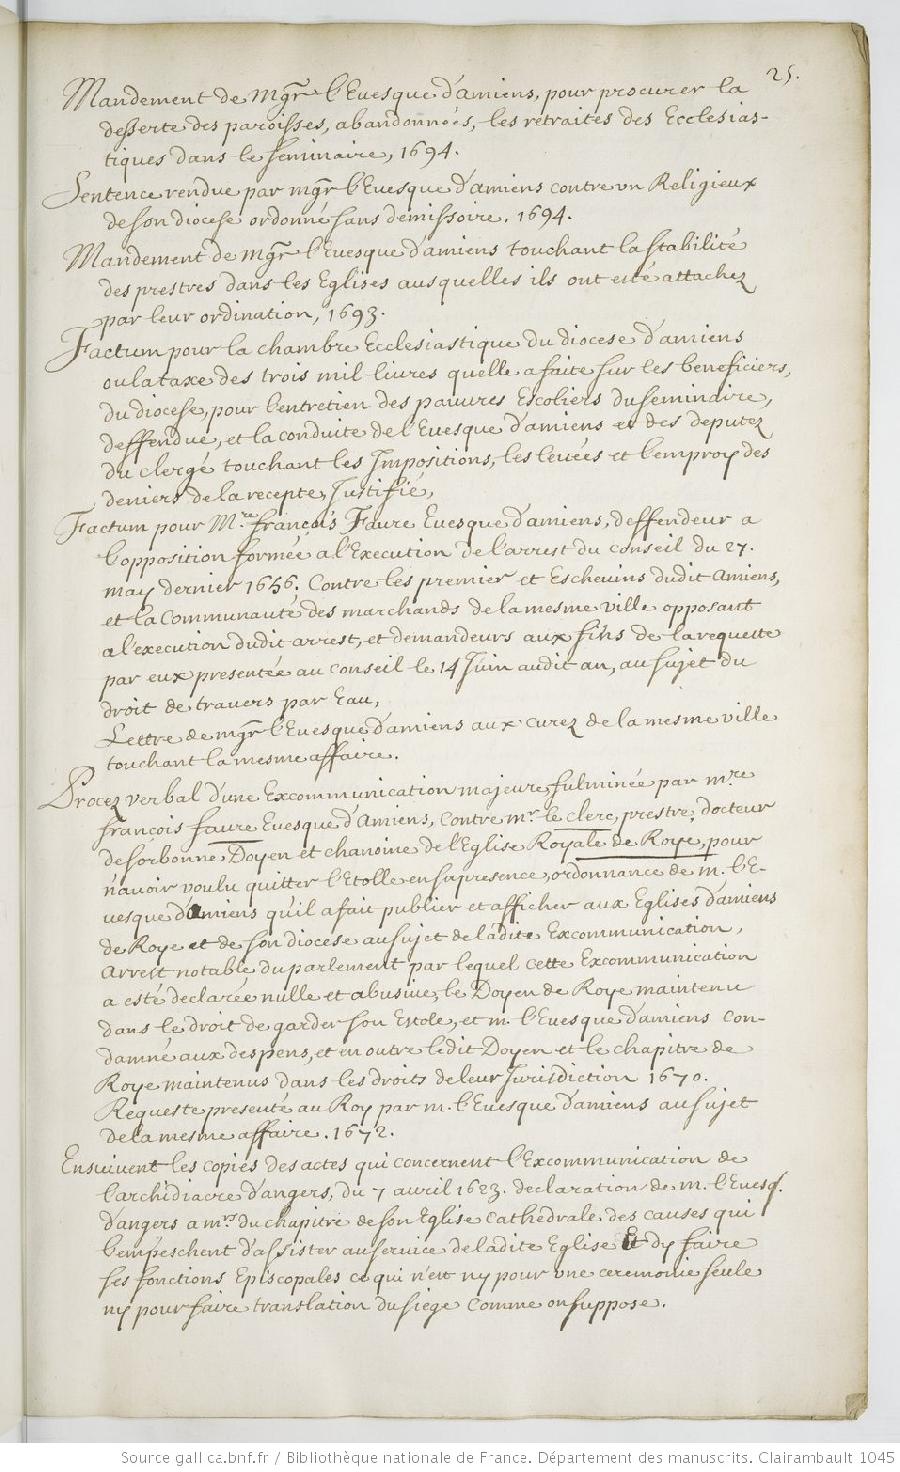 25.
Mandement de Mgr l'Evesque d'amiens, pour procurer la
desserte des paroisses, abandonnées, les retraites des Ecclesias-
tiques dans le seminaire, 1694.
Sentence rendue par mgr l'Evesque d'amiens contre un Religieux
de son diocese ordonné sans démissoire. 1694.
Mandement de mgr l'Evesque d'amiens touchant la stabilité
des prestres dans les Eglises ausquelles ils ont esté attachez
par leur ordination, 1693.
Factum pour la chambre Ecclesiastique du diocese d'amiens
ou la taxe des trois mil livres quelle a faite sur les beneficiers,
du diocese, pour l'entretien des pauvres Escoliers du seminaire,
deffendue, et la conduite de l'Evesque d'amiens et des deputez
du clergé touchant les Impositions, les levées et l'employ des
deniers de la recepte, Justifié,
Factum pour Mre françois Faure Evesque d'amiens, deffendeur a
l'opposition formée a l'Execution de l'arrest du conseil du 27.
may dernier 1656. Contre les premier et Eschevins dudit amiens,
et la Communauté des marchands de la mesme ville opposant
a l'execution dudit arrest, et demandeurs aux fins de la requette
par eux presentée au conseil le 14 Juin audit an, au sujet du
droit de travers par Eau,
Lettre de mgr l'Evesque d'amiens aux curez de la mesme ville
touchant la mesme affaire.
Procez verbal d'une Excommunication majeure fulminée par mre
françois faure Evesque d'Amiens, contre mr le clerc, prestre, docteur
de sorbonne Doyen et chanoine de l'Eglise Royale de Roye, pour
n'avoir voulu quitter l'Etolle en sa presence, ordonnance de m. l'E-
vesque d'Amiens qu'il a fait publier et afficher aux Eglises d'amiens
de Roye et de son diocese au sujet de ladite Excommunication,
Arrest notable du parlement par lequel cette Excommunication
a esté declarée nulle et abusive, le Doyen de Roye maintenu
dans le droit de garder son Estole, et m. l'Evesque d'amiens con-
damné aux despens, et en outre ledit Doyen et le chapitre de
Roye maintenus dans les droits de leur Jurisdiction 1670.
Requeste presenté au Roy par m. l'Evesque d'amiens au sujet
de la mesme affaire. 1672.
Ensuivent les copies des actes qui concernent l'Excommunication de
l'archidiacre d'angers, du 7 avril 1623. declaration de m. l'Evesq.
d'angers a mrs du chapitre de son Eglise cathedrale des causes qui
l'empeschent d'assister au service de ladite Eglise Et dy faire
ses fonctions Episcopales ce qui n'est ny pour une ceremonie seule
ny pour faire translation du siege comme on suppose.
Source gallica.bnf.fr / Bibliothèque nationale de France. Département des manuscrits. Clairambault 1045